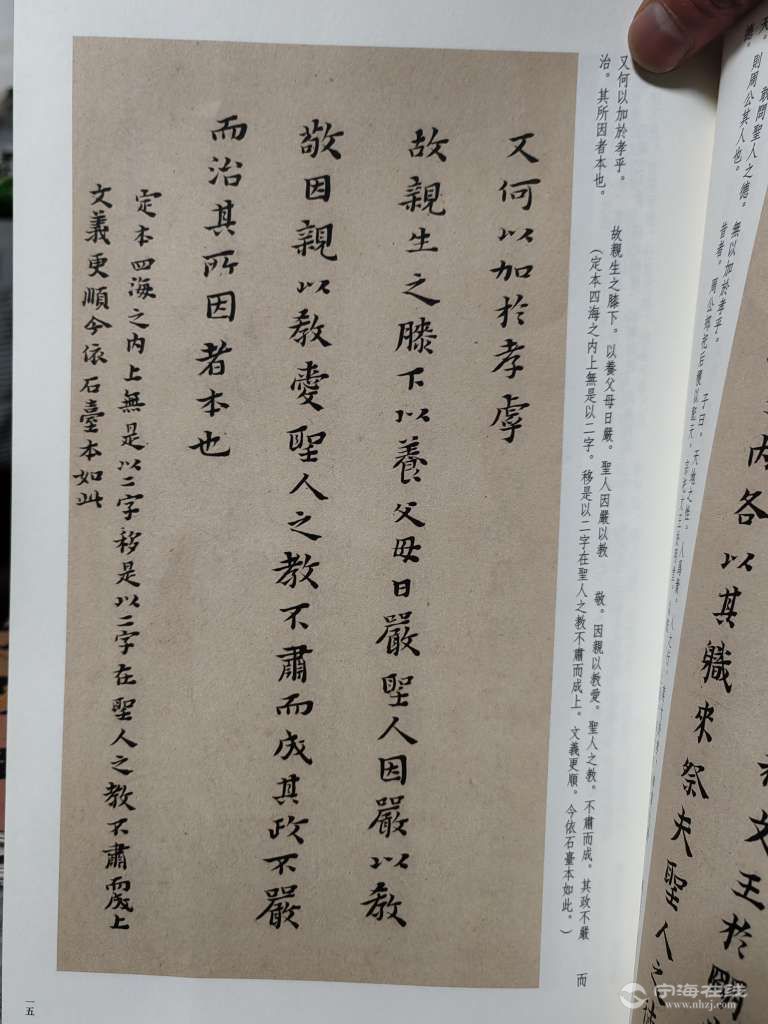 天。敢問聖人之德。無以加於孝乎。
德。則周公其人也。昔者。周公郊祀后稷以配天。
內各以其職來祭夫聖人之德
文王於明
又何以加於孝乎。故親生之膝下。以養父母日嚴。聖人因嚴以教敬。因親以教愛。聖人之教。不肅而成。其政不嚴而
治。其所因者本也。(定本四海之內上無是以二字。移是以二字在聖人之教不肅而成上。文義更順。今依石臺本如此。)
又何以加於孝虖
故親生之膝下以養父母日嚴聖人因嚴以教
敬因親以教愛聖人之教不肅而成其政不嚴
而治其所因者本也
定本四海之內上無是以二字移是以二字在聖人之教不肅而成上
文義更順今依石臺本如此
一五
宁海在线
www.nhzj.com